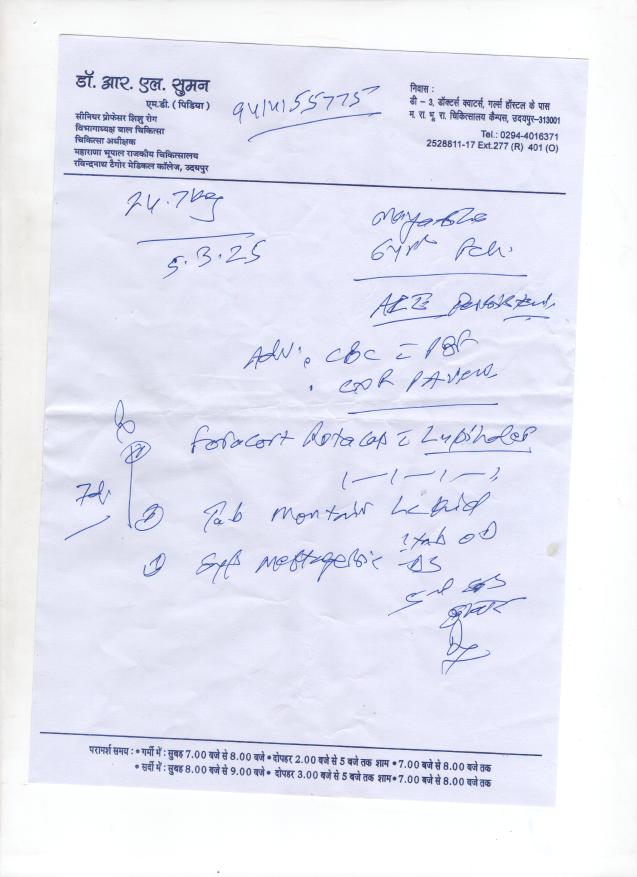 डॉ. आर. एल. सुमन
एम.डी. (पिडिया)
सीनियर प्रोफेसर शिशु रोग
विभागाध्यक्ष बाल चिकित्सा
चिकित्सा अधीक्षक
महाराणा भूपाल राजकीय चिकित्सालय
रविन्द्रनाथ टैगोर मेडिकल कॉलेज, उदयपुर
9414155775
निवास :
डी – 3, डॉक्टर्स क्वाटर्स, गर्ल्स हॉस्टल के पास
म. रा. भू. रा. चिकित्सालय कैम्पस, उदयपुर–313001
Tel.: 0294-4016371
2528811-17 Ext.277 (R) 401 (O)
24.7kg
5.3.25
Adv: CBC
Foracort Rotacap Lupihaler
1-1-1-1
7d
Tab Montair Kid
1 tab OD
Syp DS
5 ml
परामर्श समय : • गर्मी में : सुबह 7.00 बजे से 8.00 बजे • दोपहर 2.00 बजे से 5 बजे तक शाम • 7.00 बजे से 8.00 बजे तक
• सर्दी में : सुबह 8.00 बजे से 9.00 बजे • दोपहर 3.00 बजे से 5 बजे तक शाम • 7.00 बजे से 8.00 बजे तक